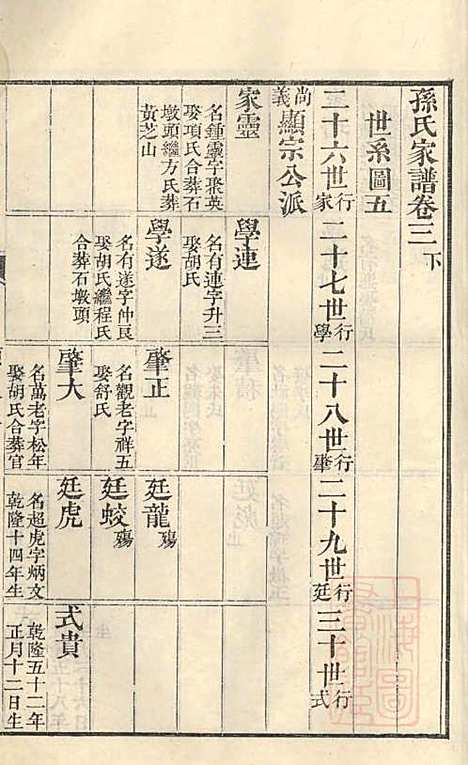 孫氏家譜卷三下
世系圖五
二十六世行家 二十七世行學 二十八世行肇 二十九世行廷 三十世行式
尚義顯宗公派
家靈
名鍾靈字聚英
娶項氏合葬石
墩頭繼方氏葬
黃芝山
學連
名有連字升三
娶胡氏
學遂
名有遂字仲良
娶胡氏繼程氏
合葬石墩頭
肇正
名觀老字祥五
娶舒氏
肇大
名萬老字松年
娶胡氏合葬官
廷龍殤
廷蛟殤
廷虎
名超虎字炳文
乾隆十四年生
式貴
乾隆五十二年
正月十二日生